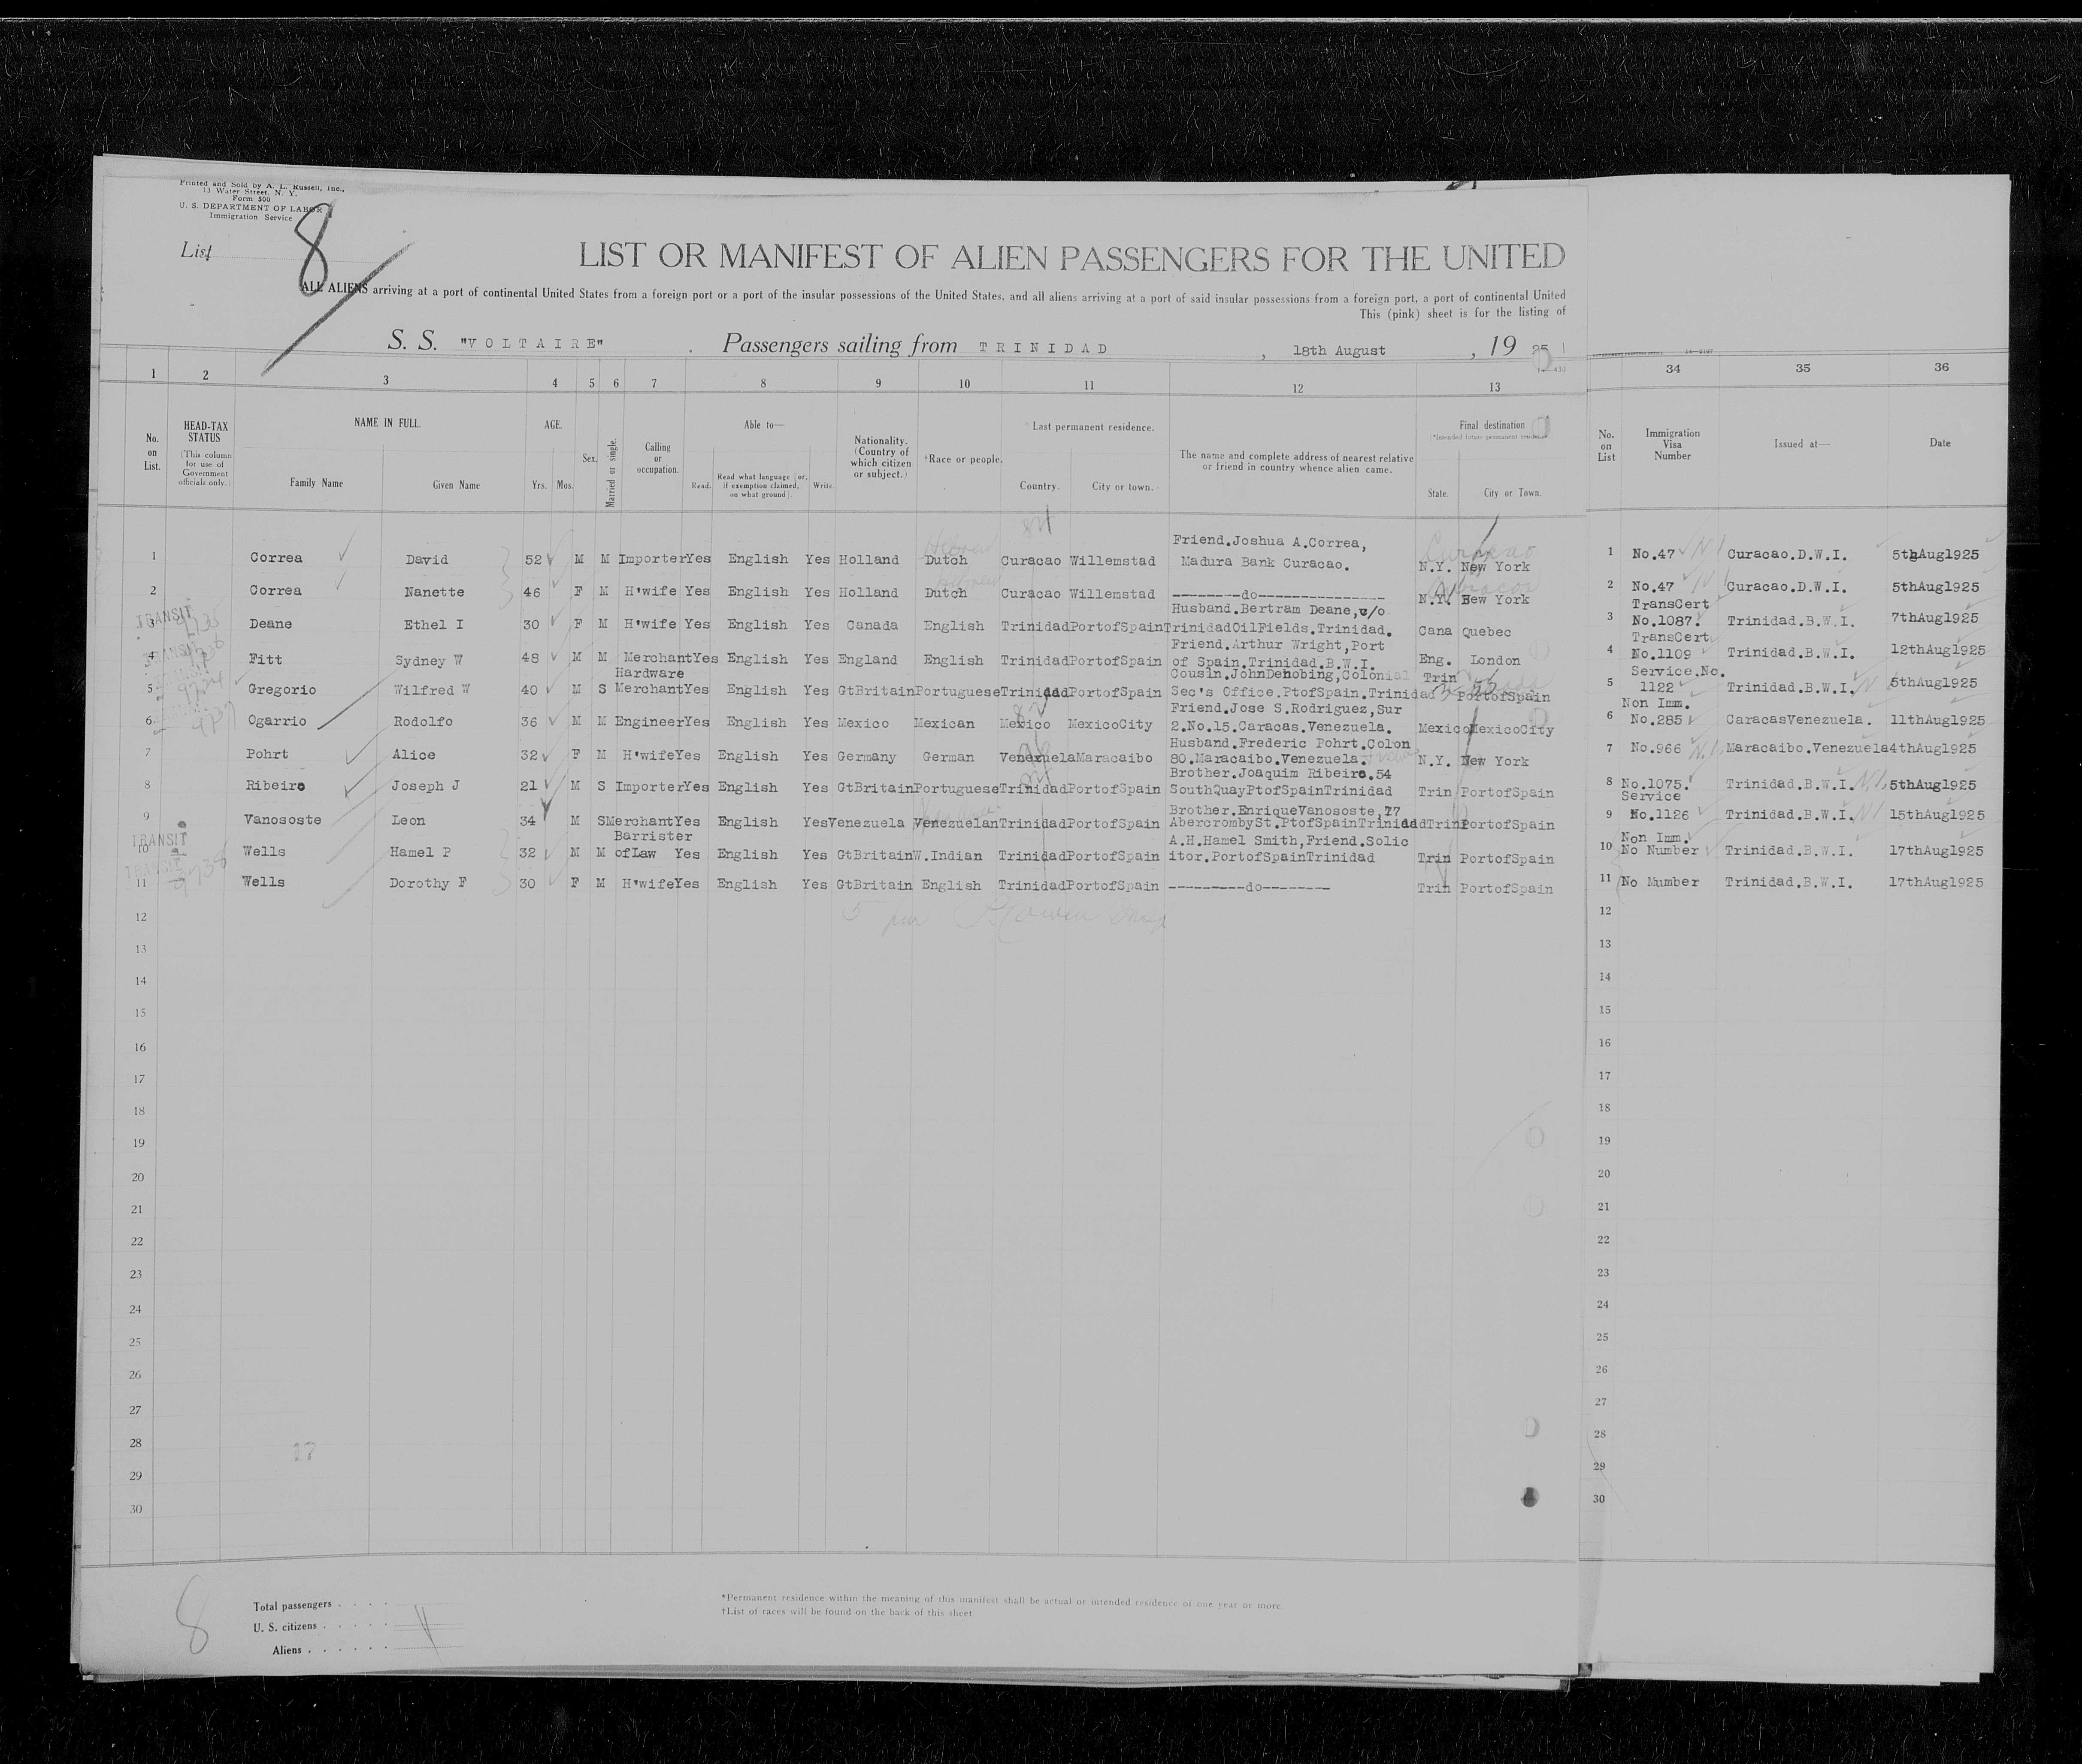 Printed and Sold by A. L. Russell, Inc.,
13 Water Street, N. Y.
Form 500
U. S. DEPARTMENT OF LABOR
Immigration Service
List 8
LIST OR MANIFEST OF ALIEN PASSENGERS FOR THE UNITED
ALL ALIENS arriving at a port of continental United States from a foreign port or a port of the insular possessions of the United States, and all aliens arriving at a port of said insular possessions from a foreign port, a port of continental United
This (pink) sheet is for the listing of
S. S. "VOLTAIRE" . Passengers sailing from TRINIDAD , 18th August , 19 25
1 2 3 4 5 6 7 8 9 10 11 12 13 34 35 36
No. on List.
HEAD-TAX STATUS
(This column for use of Government officials only.)
NAME IN FULL.
Family Name Given Name
AGE.
Yrs. Mos.
Sex.
Married or single.
Calling or occupation.
Able to—
Read. Read what language [or, if exemption claimed, on what ground]. Write.
Nationality. (Country of which citizen or subject.)
†Race or people.
*Last permanent residence.
Country. City or town.
The name and complete address of nearest relative or friend in country whence alien came.
Final destination
*Intended future permanent residence
State. City or Town.
No. on List
Immigration Visa Number
Issued at—
Date
Friend.Joshua A.Correa,
1 Correa David 52 M M Importer Yes English Yes Holland Dutch Curacao Willemstad Madura Bank Curacao. N.Y. New York 1 No.47 Curacao.D.W.I. 5thAug1925
2 Correa Nanette 46 F M H'wife Yes English Yes Holland Dutch Curacao Willemstad --------do--------------- N.Y. New York 2 No.47 Curacao.D.W.I. 5thAug1925
TRANSIT Husband.Bertram Deane,c/o TransCert
3 Deane Ethel I 30 F M H'wife Yes English Yes Canada English Trinidad PortofSpain TrinidadOilFields.Trinidad. Cana Quebec 3 No.1087. Trinidad.B.W.I. 7thAug1925
Friend.Arthur Wright,Port TransCert
4 Fitt Sydney W 48 M M Merchant Yes English Yes England English Trinidad PortofSpain of Spain.Trinidad.B.W.I. Eng. London 4 No.1109 Trinidad.B.W.I. 12thAug1925
Hardware Cousin.JohnDenobing,Colonial Trin Service.No.
5 Gregorio Wilfred W 40 M S Merchant Yes English Yes GtBritain Portuguese Trinidad PortofSpain Sec's Office.PtofSpain.Trinidad PortofSpain 5 1122 Trinidad.B.W.I. 5thAug1925
Friend.Jose S.Rodriguez,Sur Non Imm.
6 Ogarrio Rodolfo 36 M M Engineer Yes English Yes Mexico Mexican Mexico MexicoCity 2.No.15.Caracas.Venezuela. Mexico MexicoCity 6 No.285 CaracasVenezuela. 11thAug1925
Husband.Frederic Pohrt.Colon
7 Pohrt Alice 32 F M H'wife Yes English Yes Germany German Venezuela Maracaibo 80.Maracaibo.Venezuela. N.Y. New York 7 No.966 Maracaibo.Venezuela 4thAug1925
Brother.Joaquim Ribeiro.54
8 Ribeiro Joseph J 21 M S Importer Yes English Yes GtBritain Portuguese Trinidad PortofSpain SouthQuayPtofSpainTrinidad Trin PortofSpain 8 No.1075. Trinidad.B.W.I. 5thAug1925
Brother.EnriqueVanososte,77 Service
9 Vanososte Leon 34 M S Merchant Yes English Yes Venezuela Venezuelan Trinidad PortofSpain AbercrombySt.PtofSpainTrinidad Trin PortofSpain 9 No.1126 Trinidad.B.W.I. 15thAug1925
TRANSIT Barrister A.H.Hamel Smith,Friend.Solic Non Imm.
10 Wells Hamel P 32 M M ofLaw Yes English Yes GtBritain W.Indian Trinidad PortofSpain itor.PortofSpainTrinidad Trin PortofSpain 10 No Number Trinidad.B.W.I. 17thAug1925
11 Wells Dorothy F 30 F M H'wife Yes English Yes GtBritain English Trinidad PortofSpain ----------do-------- Trin PortofSpain 11 No Mumber Trinidad.B.W.I. 17thAug1925
12 12
13 13
14 14
15 15
16 16
17 17
18 18
19 19
20 20
21 21
22 22
23 23
24 24
25 25
26 26
27 27
28 17 28
29 29
30 30
8
Total passengers . . . .
U. S. citizens . . . . .
Aliens . . . . . .
*Permanent residence within the meaning of this manifest shall be actual or intended residence of one year or more.
†List of races will be found on the back of this sheet.